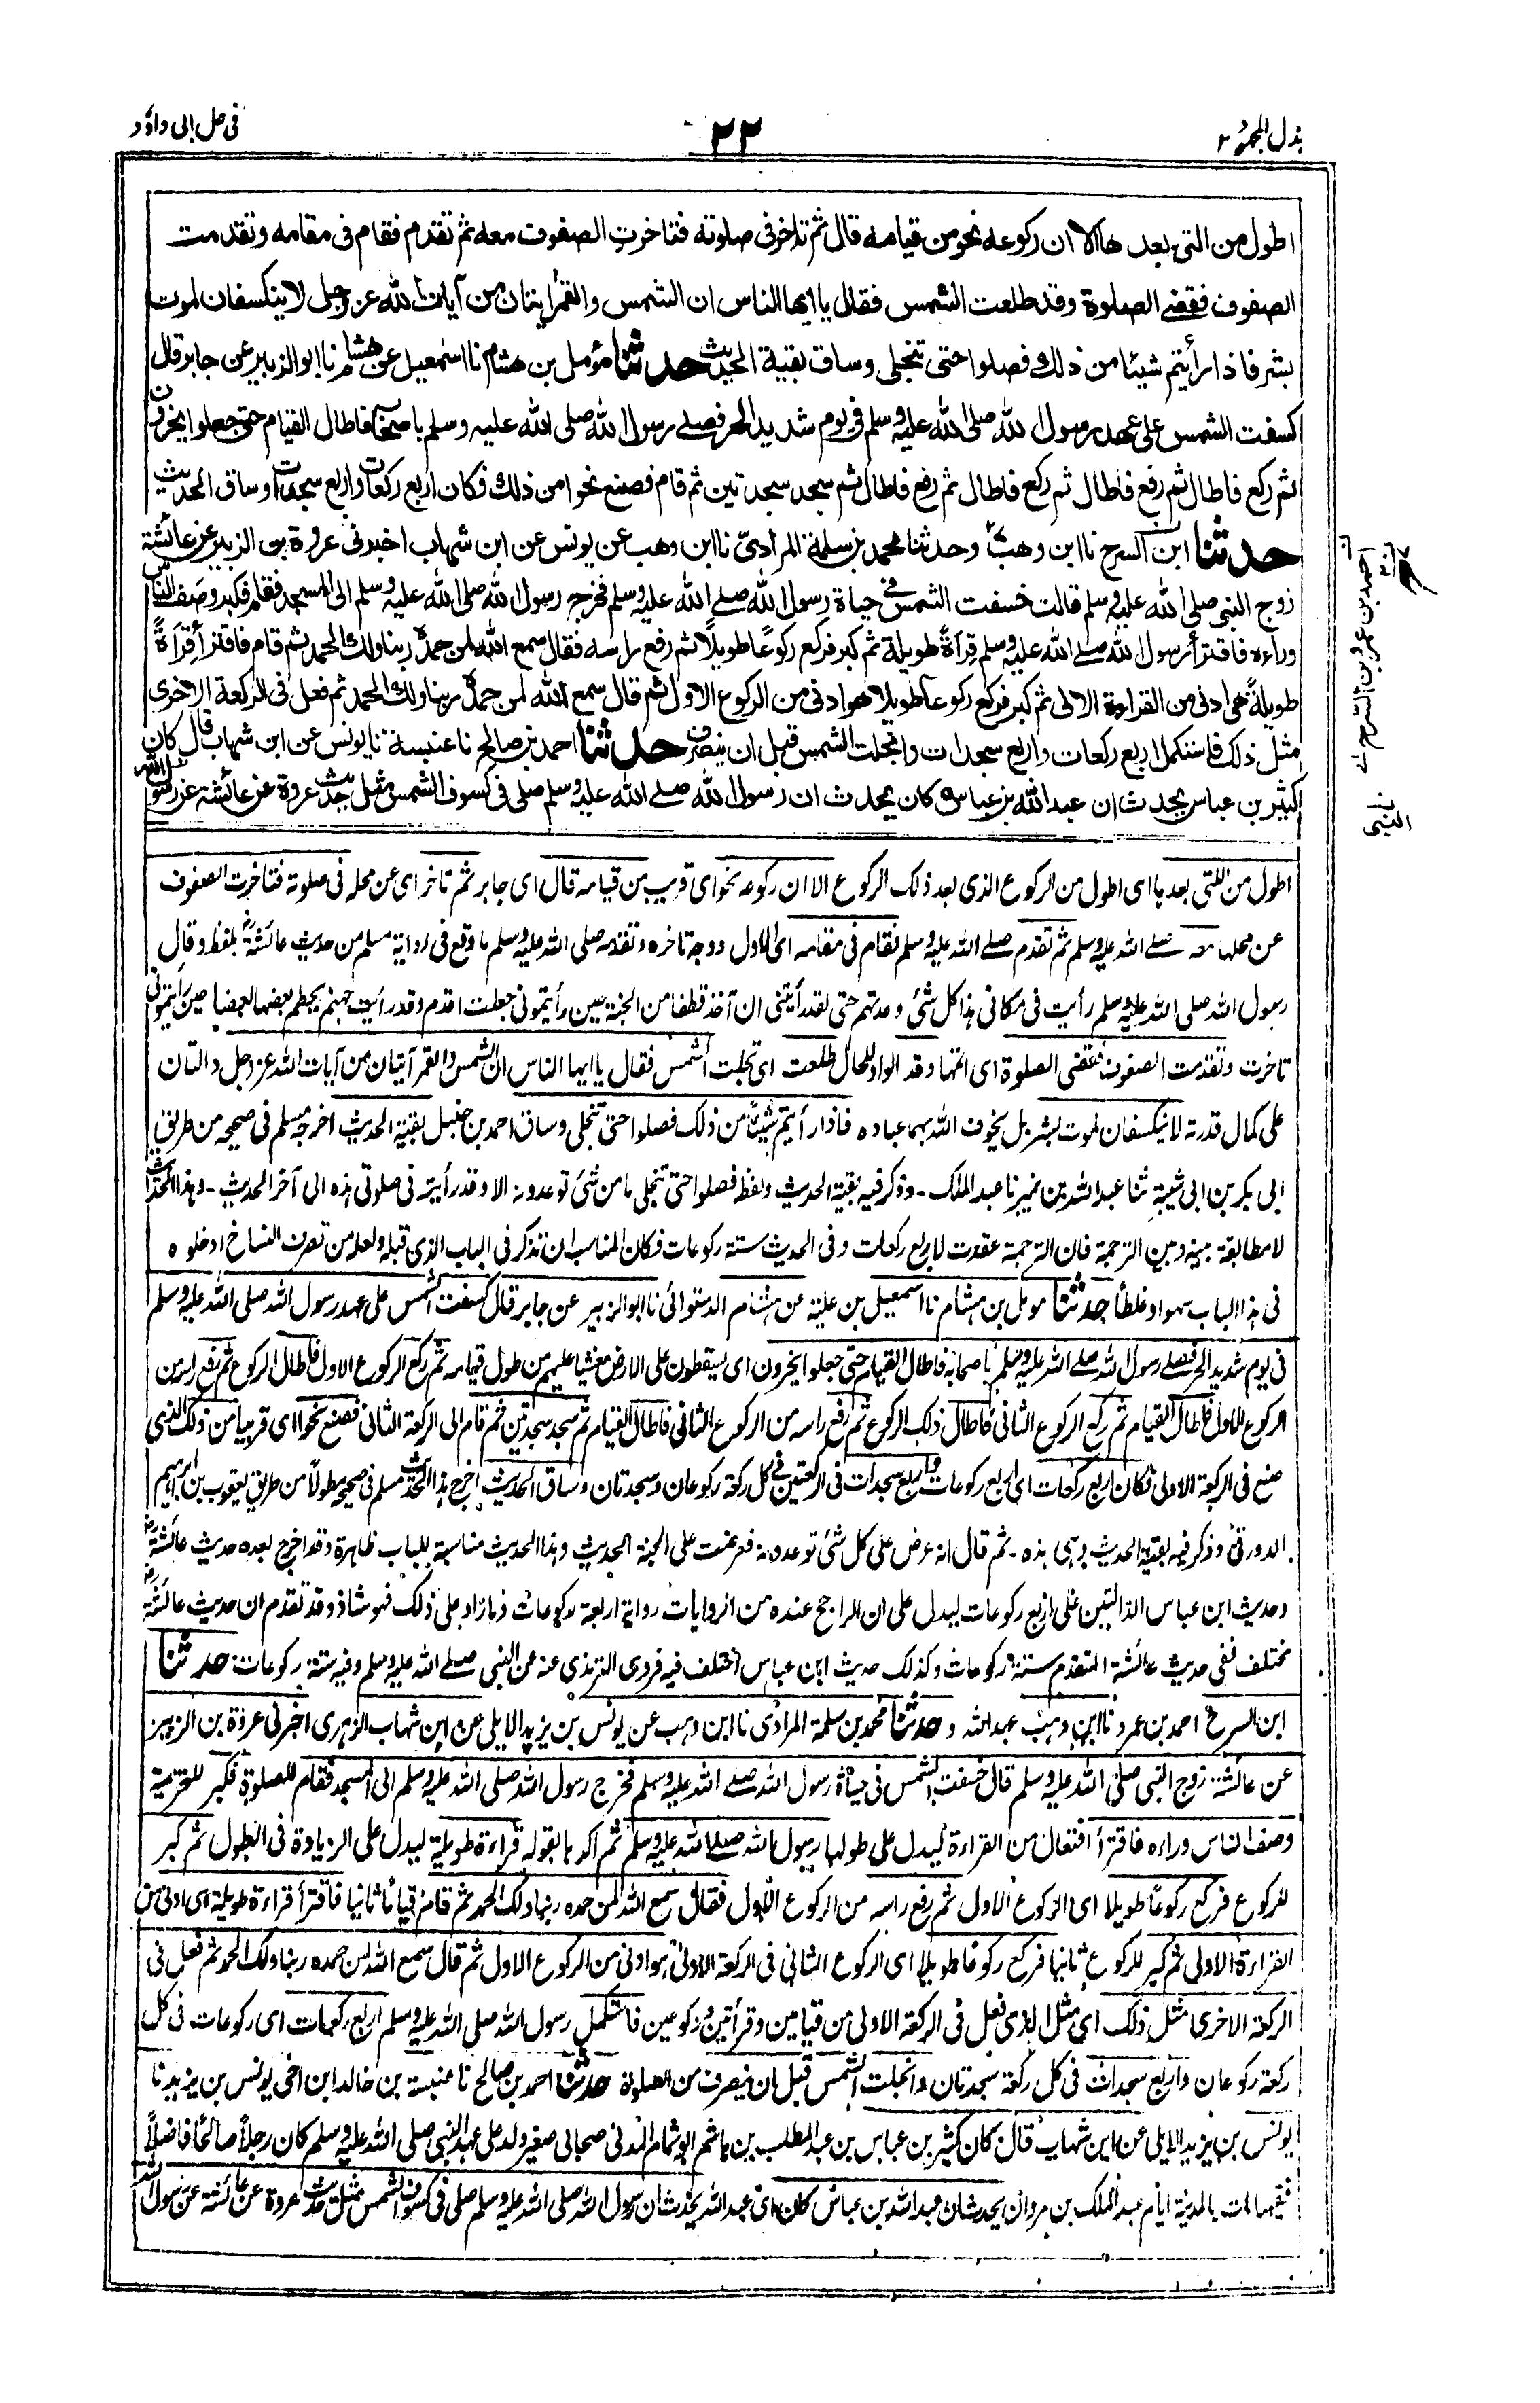 بذل المجهود ٢
٢٢
فى حل ابى داؤد
اطول من التى بعدها الا ان ركوعه نحو من قيامه قال ثم تاخر فى صلوته فتاخرت الصفوف معه ثم تقدم فقام فى مقامه وتقدمت
الصفوف فقضى الصلوة وقد طلعت الشمس فقال يا ايها الناس ان الشمس والقمر آيتان من آيات الله عز وجل لا ينكسفان لموت
بشر فاذا رأيتم شيئا من ذلك فصلوا حتى تنجلى وساق بقية الحديث حدثنا مؤمل بن هشام نا اسمعيل عن هشام نا ابو الزبير عن جابر قال
كسفت الشمس على عهد رسول الله صلى الله عليه وسلم فى يوم شديد الحر فصلى رسول الله صلى الله عليه وسلم باصحابه فاطال القيام حتى جعلوا يخرون
ثم ركع فاطال ثم رفع فاطال ثم ركع فاطال ثم رفع فاطال ثم سجد سجدتين ثم قام فصنع نحوا من ذلك فكان اربع ركعات واربع سجدات وساق الحديث
حدثنا ابن السرح نا ابن وهب ح وحدثنا محمد بن سلمة المرادى نا ابن وهب عن يونس عن ابن شهاب اخبرنى عروة بن الزبير عن عائشة
زوج النبى صلى الله عليه وسلم قالت خسفت الشمس فى حياة رسول الله صلى الله عليه وسلم فخرج رسول الله صلى الله عليه وسلم الى المسجد فقام فكبر وصف الناس
وراءه فاقترأ رسول الله صلى الله عليه وسلم قراءة طويلة ثم كبر فركع ركوعا طويلا ثم رفع راسه فقال سمع الله لمن حمده ربنا ولك الحمد ثم قام فاقترأ قراءة
طويلة هى ادنى من القراءة الاولى ثم كبر فركع ركوعا طويلا هو ادنى من الركوع الاول ثم قال سمع الله لمن حمده ربنا ولك الحمد ثم فعل فى الركعة الاخرى
مثل ذلك فاستكمل اربع ركعات واربع سجدات وانجلت الشمس قبل ان ينصرف حدثنا احمد بن صالح نا عنبسة نا يونس عن ابن شهاب قال كان
كثير بن عباس يحدث ان عبد الله بن عباس كان يحدث ان رسول الله صلى الله عليه وسلم صلى فى كسوف الشمس مثل حديث عروة عن عائشة عن رسول الله
احمد بن عمرو بن السرح
النبى
اطول من اللتى بعدها اى اطول من الركوع الذى بعد ذلك الركوع الا ان ركوعه نحوا اى قريب من قيامه قال اى جابر ثم تاخر اى عن محله فى صلوته فتاخرت الصفوف
عن محلها معه صلى الله عليه وسلم ثم تقدم صلى الله عليه وسلم فقام فى مقامه اى الاول ووجه تاخره وتقدمه صلى الله عليه وسلم ما وقع فى رواية مسلم من حديث عائشة بلفظ وقال
رسول الله صلى الله عليه وسلم رأيت فى مكانى هذا كل شئ وعدتم حتى لقد رأيتنى ان آخذ قطفا من الجنة حين رأيتمونى جعلت اقدم وقد رأيت جهنم يحطم بعضها بعضا حين رأيتمونى
تاخرت وتقدمت الصفوف فقضى الصلوة اى اتمها وقد الواو للحال طلعت اى تجلت الشمس فقال يا ايها الناس ان الشمس والقمر آيتان من آيات الله عز وجل دالتان
على كمال قدرته لا ينكسفان لموت بشر بل يخوف الله بهما عباده فاذا رأيتم شيئا من ذلك فصلوا حتى تنجلى وساق احمد بن حنبل بقية الحديث اخرجه مسلم فى صحيحه من طريق
ابى بكر بن ابى شيبة ثنا عبد الله بن نمير نا عبد الملك - وذكر فيه بقية الحديث ولفظه فصلوا حتى تنجلى ما من شئ توعدونه الا وقد رأيته فى صلوتى هذه الى آخر الحديث - وهذا الحديث
لا مطابقة بينه وبين الترجمة فان الترجمة عقدت لاربع ركعات وفى الحديث ستة ركوعات فكان المناسب ان تذكر فى الباب الذى قبله ولعله من تصرف النساخ ادخلوه
فى هذا الباب سهوا وغلطا حدثنا مومل بن هشام نا اسمعيل بن علية عن هشام الدستوائى نا ابو الزبير عن جابر قال كسفت الشمس على عهد رسول الله صلى الله عليه وسلم
فى يوم شديد الحر فصلى رسول الله صلى الله عليه وسلم باصحابه فاطال القيام حتى جعلوا يخرون اى يسقطون على الارض مغشيا عليهم من طول قيامه ثم ركع الركوع الاول فاطال الركوع ثم رفع راسه من
الركوع الاول فاطال القيام ثم ركع الركوع الثانى فاطال ذلك الركوع ثم رفع راسه من الركوع الثانى فاطال القيام ثم سجد سجدتين ثم قام الى الركعة الثانى فصنع نحوا اى قريبا من ذلك الذى
صنع فى الركعة الاولى فكان اربع ركعات اى اربع ركوعات واربع سجدات فى الركعتين فى كل ركعة ركوعان وسجدتان وساق الحديث اخرج هذا الحديث مسلم فى صحيحه مطولا من طريق يعقوب بن ابراهيم
الدورقى وذكر فيه بقية الحديث وهى هذه - ثم قال انه عرض على كل شئ توعدونه فعرضت على الجنة الحديث وهذا الحديث مناسبة بالباب ظاهرة وقد اخرج بعده حديث عائشة
وحديث ابن عباس الدالتين على اربع ركوعات ليدل على ان الراجح عنده من الروايات رواية اربعة ركوعات وما زاد على ذلك فهو شاذ وقد تقدم ان حديث عائشة
مختلف ففى حديث عائشة المتقدم ستة ركوعات وكذلك حديث ابن عباس اختلف فيه فروى الترمذى عنه عن النبى صلى الله عليه وسلم وفيه ستة ركوعات حدثنا
ابن السرح احمد بن عمرو نا ابن وهب عبد الله وحدثنا محمد بن سلمة المرادى نا ابن وهب عن يونس بن يزيد الايلى عن ابن شهاب الزهرى اخبرنى عروة بن الزبير
عن عائشة زوج النبى صلى الله عليه وسلم قالت خسفت الشمس فى حياة رسول الله صلى الله عليه وسلم فخرج رسول الله صلى الله عليه وسلم الى المسجد فقام للصلوة فكبر للتحريمة
وصف الناس وراءه فاقترأ افتعال من القراءة ليدل على طولها رسول الله صلى الله عليه وسلم ثم اكدها بقوله قراءة طويلة ليدل على الزيادة فى الطول ثم كبر
للركوع فركع ركوعا طويلا اى الركوع الاول ثم رفع راسه من الركوع الاول فقال سمع الله لمن حمده ربنا ولك الحمد ثم قام قياما ثانيا فاقترأ قراءة طويلة اى ادنى من
القراءة الاولى ثم كبر للركوع ثانيا فركع ركوعا طويلا اى الركوع الثانى فى الركعة الاولى هو ادنى من الركوع الاول ثم قال سمع الله لمن حمده ربنا ولك الحمد ثم فعل فى
الركعة الاخرى مثل ذلك اى مثل الذى فعل فى الركعة الاولى من قيامين وقرأتين وركوعين فاستكمل رسول الله صلى الله عليه وسلم اربع ركعات اى ركوعات فى كل
ركعة ركوعان واربع سجدات فى كل ركعة سجدتان وانجلت الشمس قبل ان ينصرف من الصلوة حدثنا احمد بن صالح نا عنبسة بن خالد ابن اخى يونس بن يزيد نا
يونس بن يزيد الايلى عن ابن شهاب قال كان كثير بن عباس بن عبد المطلب بن هاشم ابو تمام المدنى صحابى صغير ولد على عهد النبى صلى الله عليه وسلم كان رجلا صالحا فاضلا
فقيها مات بالمدينة ايام عبد الملك بن مروان يحدث ان عبد الله بن عباس كان اى عبد الله يحدث ان رسول الله صلى الله عليه وسلم صلى فى كسوف الشمس مثل حديث عروة عن عائشة عن رسول الله